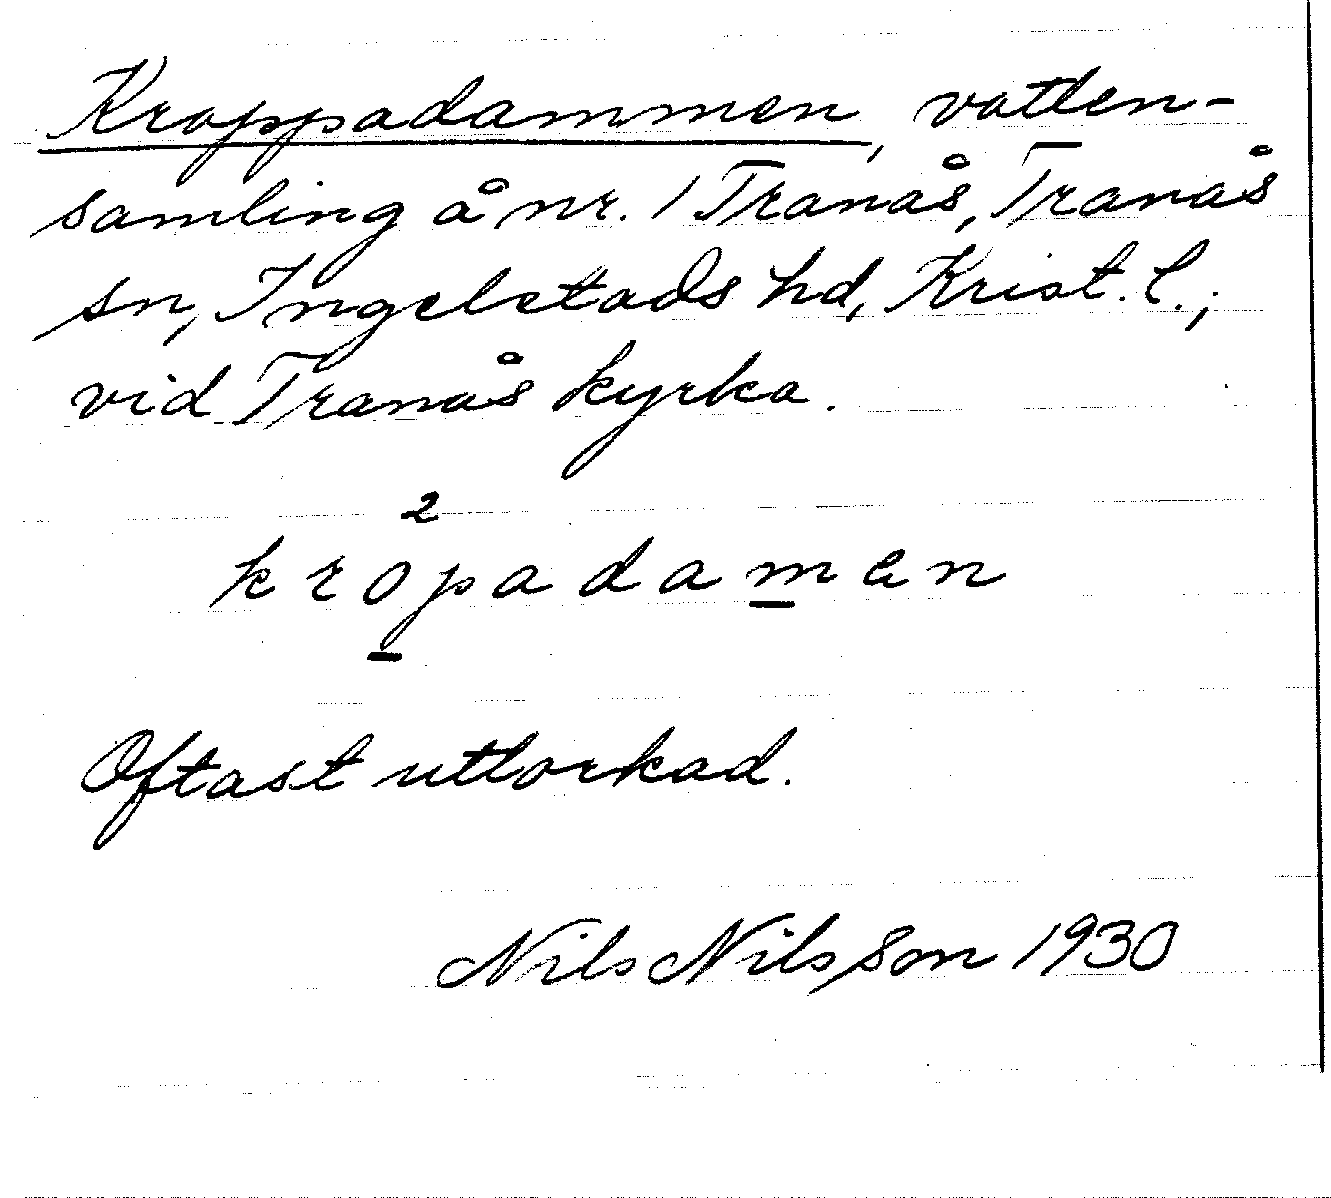 Kroppadammen, vatten-
samling å nr. 1 Tranås, Tranås
sn, Ingelstads hd, Krist. l.;
vid Tranås kyrka.
2
kropadamen
Oftast uttorkad.
Nils Nilsson 1930